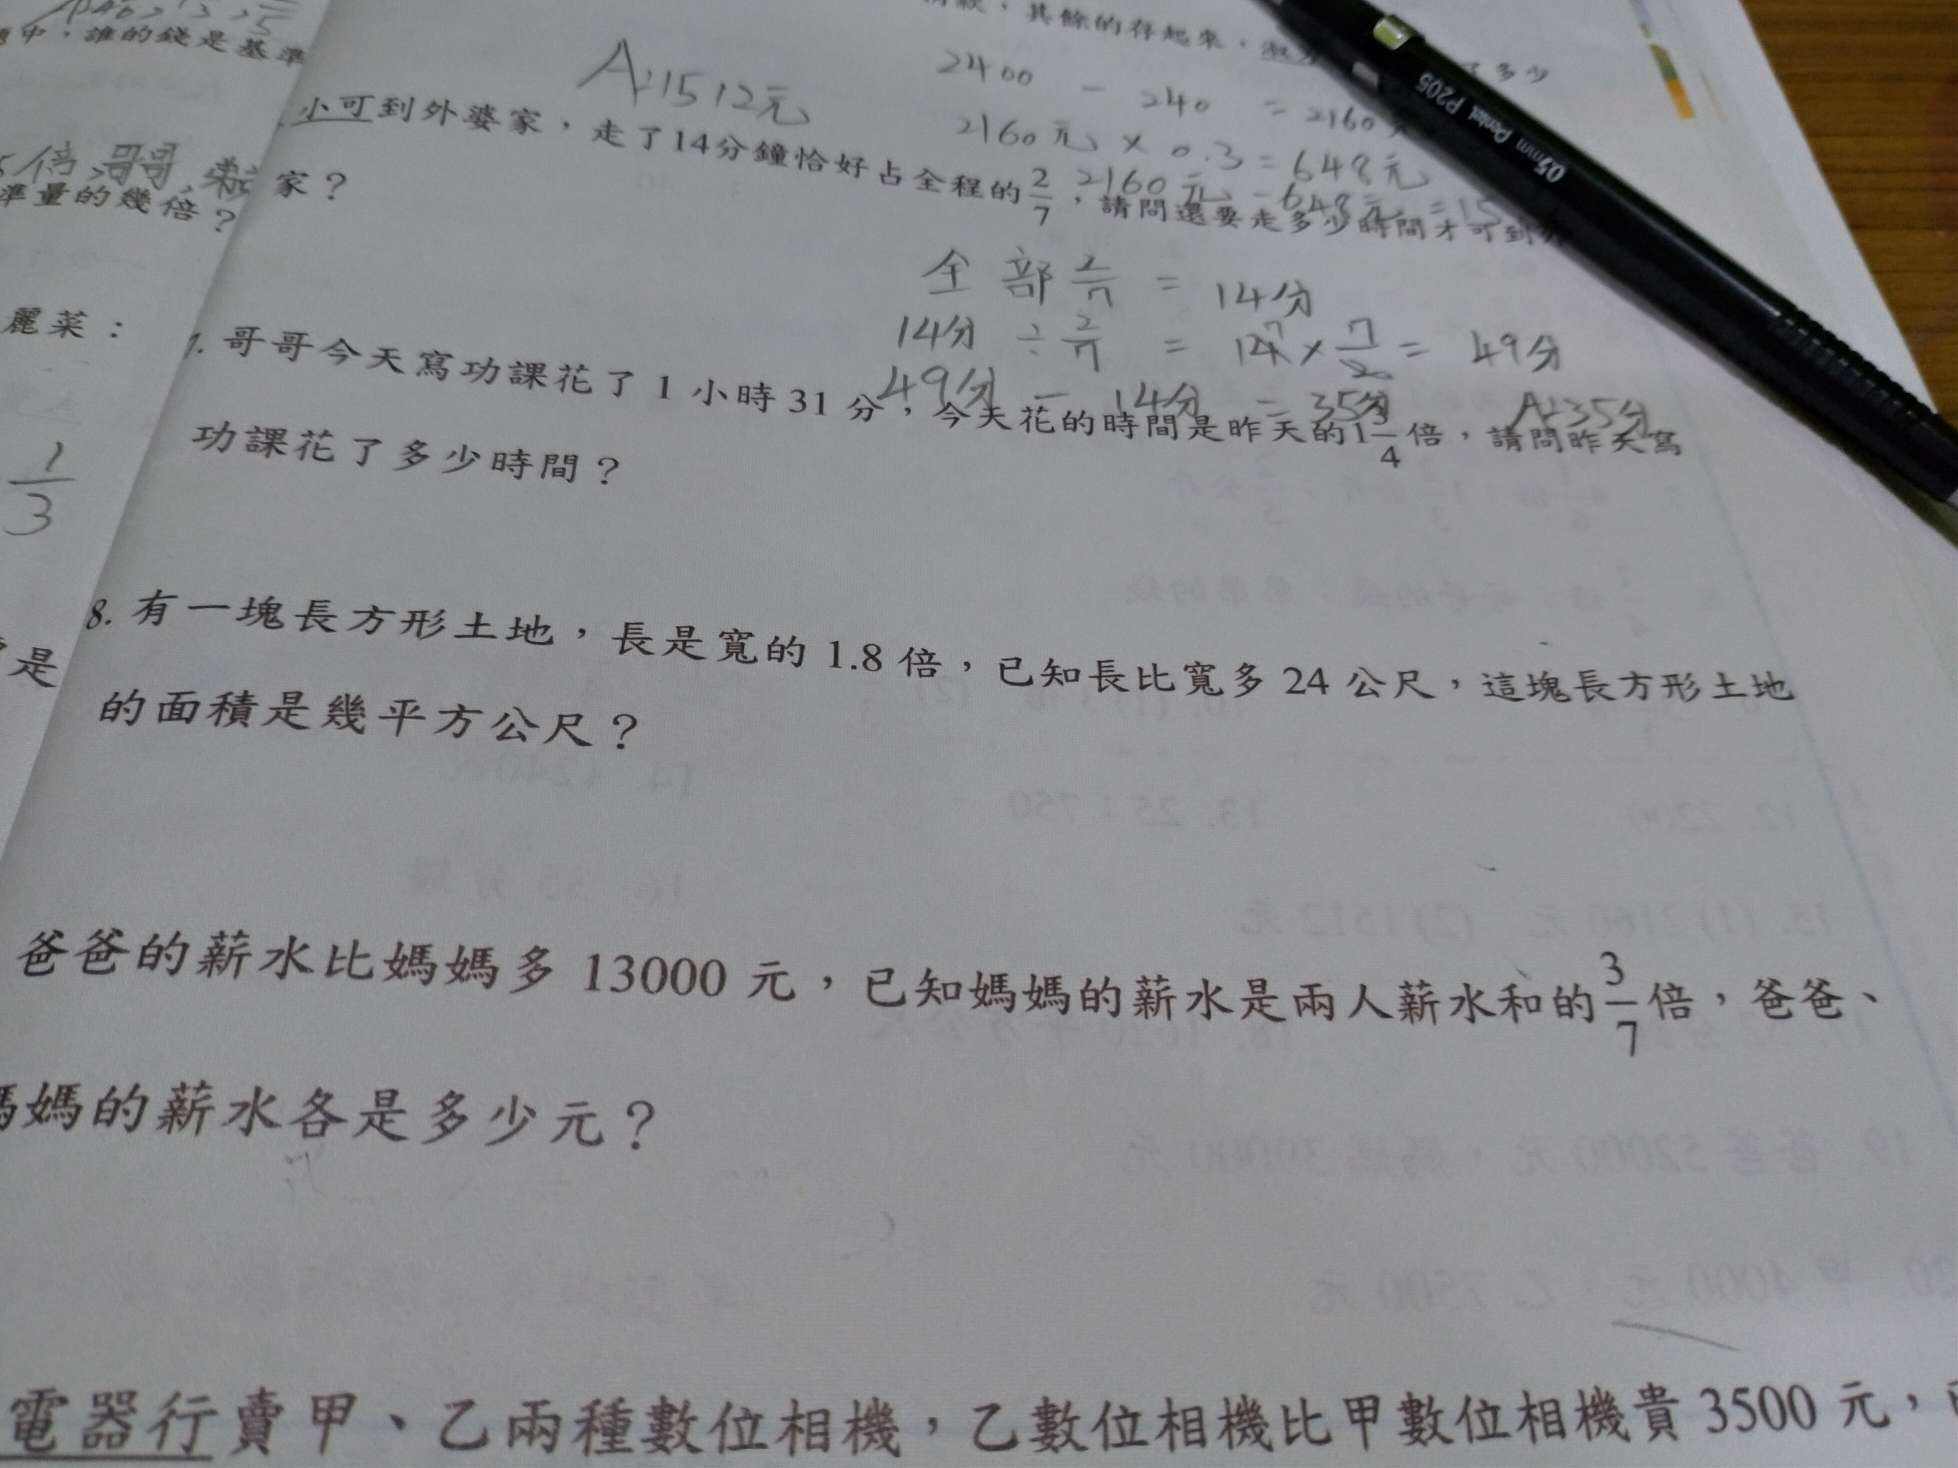 中，誰的錢是基準
倍 哥哥
準量的幾倍？
麗菜：
1/3
是
，其餘的存起來，
多少
A:1512元
2400 - 240 = 2160
2160元 × 0.3 = 648元
2160元 - 648元 = 15
小可到外婆家，走了14分鐘恰好占全程的2/7，請問還要走多少時間才可到
家？
全部2/7 = 14分
14分 ÷ 2/7 = 14 7 × 7/2 = 49分
49分 - 14分 = 35分 A:35分
哥哥今天寫功課花了 1 小時 31 分，今天花的時間是昨天的1 3/4倍，請問昨天寫
功課花了多少時間？
8. 有一塊長方形土地，長是寬的 1.8 倍，已知長比寬多 24 公尺，這塊長方形土地
的面積是幾平方公尺？
爸爸的薪水比媽媽多 13000 元，已知媽媽的薪水是兩人薪水和的3/7倍，爸爸、
媽媽的薪水各是多少元？
電器行賣甲、乙兩種數位相機，乙數位相機比甲數位相機貴 3500 元，
0.5mm Pentel P205